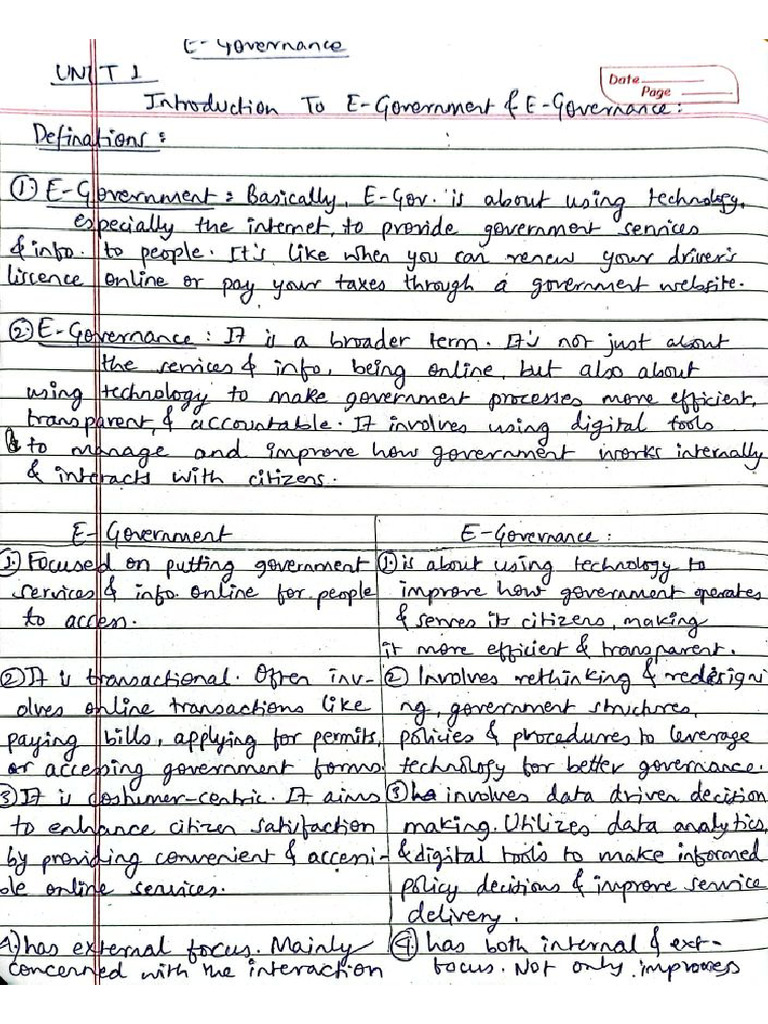 E-Governance
UNIT 1
Date
Page
Introduction To E-Government & E-Governance:
Definations:
① E-Government: Basically, E-Gov. is about using technology,
especially the internet, to provide government services
& info. to people. It's like when you can renew your driver's
liscence online or pay your taxes through a government website.
② E-Governance: It is a broader term. It's not just about
the services & info, being online, but also about
using technology to make government processes more efficient,
transparent, & accountable. It involves using digital tools
to manage and improve how government works internally
& interacts with citizens.
E-Government
1. Focused on putting government
services & info. online for people
to access.
② It is transactional. Often inv-
olves online transactions like
paying bills, applying for permits,
or accessing government forms
③ It is costumer-centric. It aims
to enhance citizen satisfaction
by providing convenient & accessi-
ble online services.
4. has external focus. Mainly
concerned with the interaction
E-Governance:
1. is about using technology to
improve how government operates
& serves its citizens, making
it more efficient & transparent.
② Involves rethinking & redesigni
ng, government structures,
policies & procedures to leverage
technology for better governance.
③ involves data driven decision
making. Utilizes data analytics,
& digital tools to make informed
policy decisions & improve service
delivery.
4. has both internal & ext-
focus. Not only improves